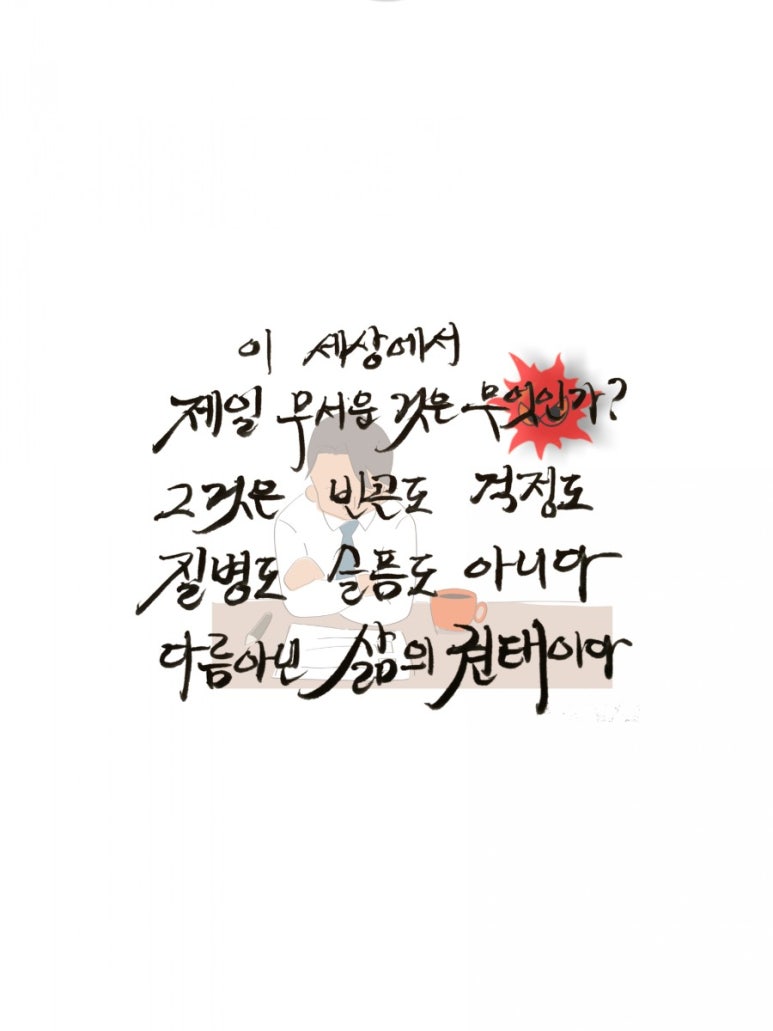 이 세상에서
제일 무서운 것은 무엇인가?
그것은 빈곤도 걱정도
질병도 슬픔도 아니다
다름아닌 삶의 권태이다